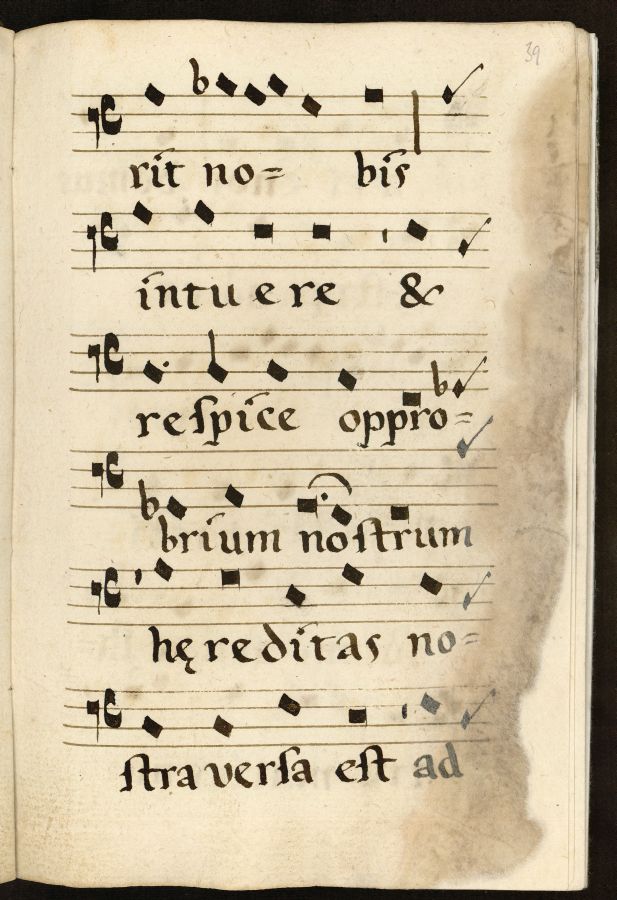 39
rit no= bis
intuere &
reſpice oppro=
brium noſtrum
hęreditas no=
ſtra verſa eſt ad